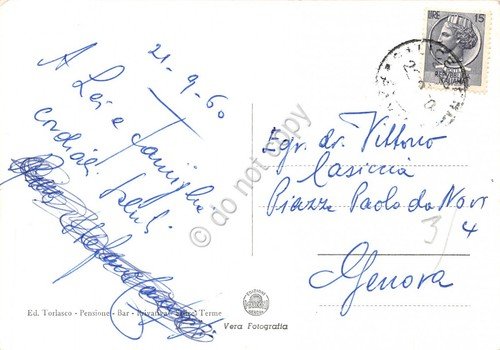 21-9-60
A Lei e famiglia
cordiali saluti
LIRE 15
Egr. dr. Vittorio
Casiccia
Piazza Paolo da Novi
3
4
Genova
do not copy
Ed. Torlasco - Pensione - Bar - Terme
Vera Fotografia